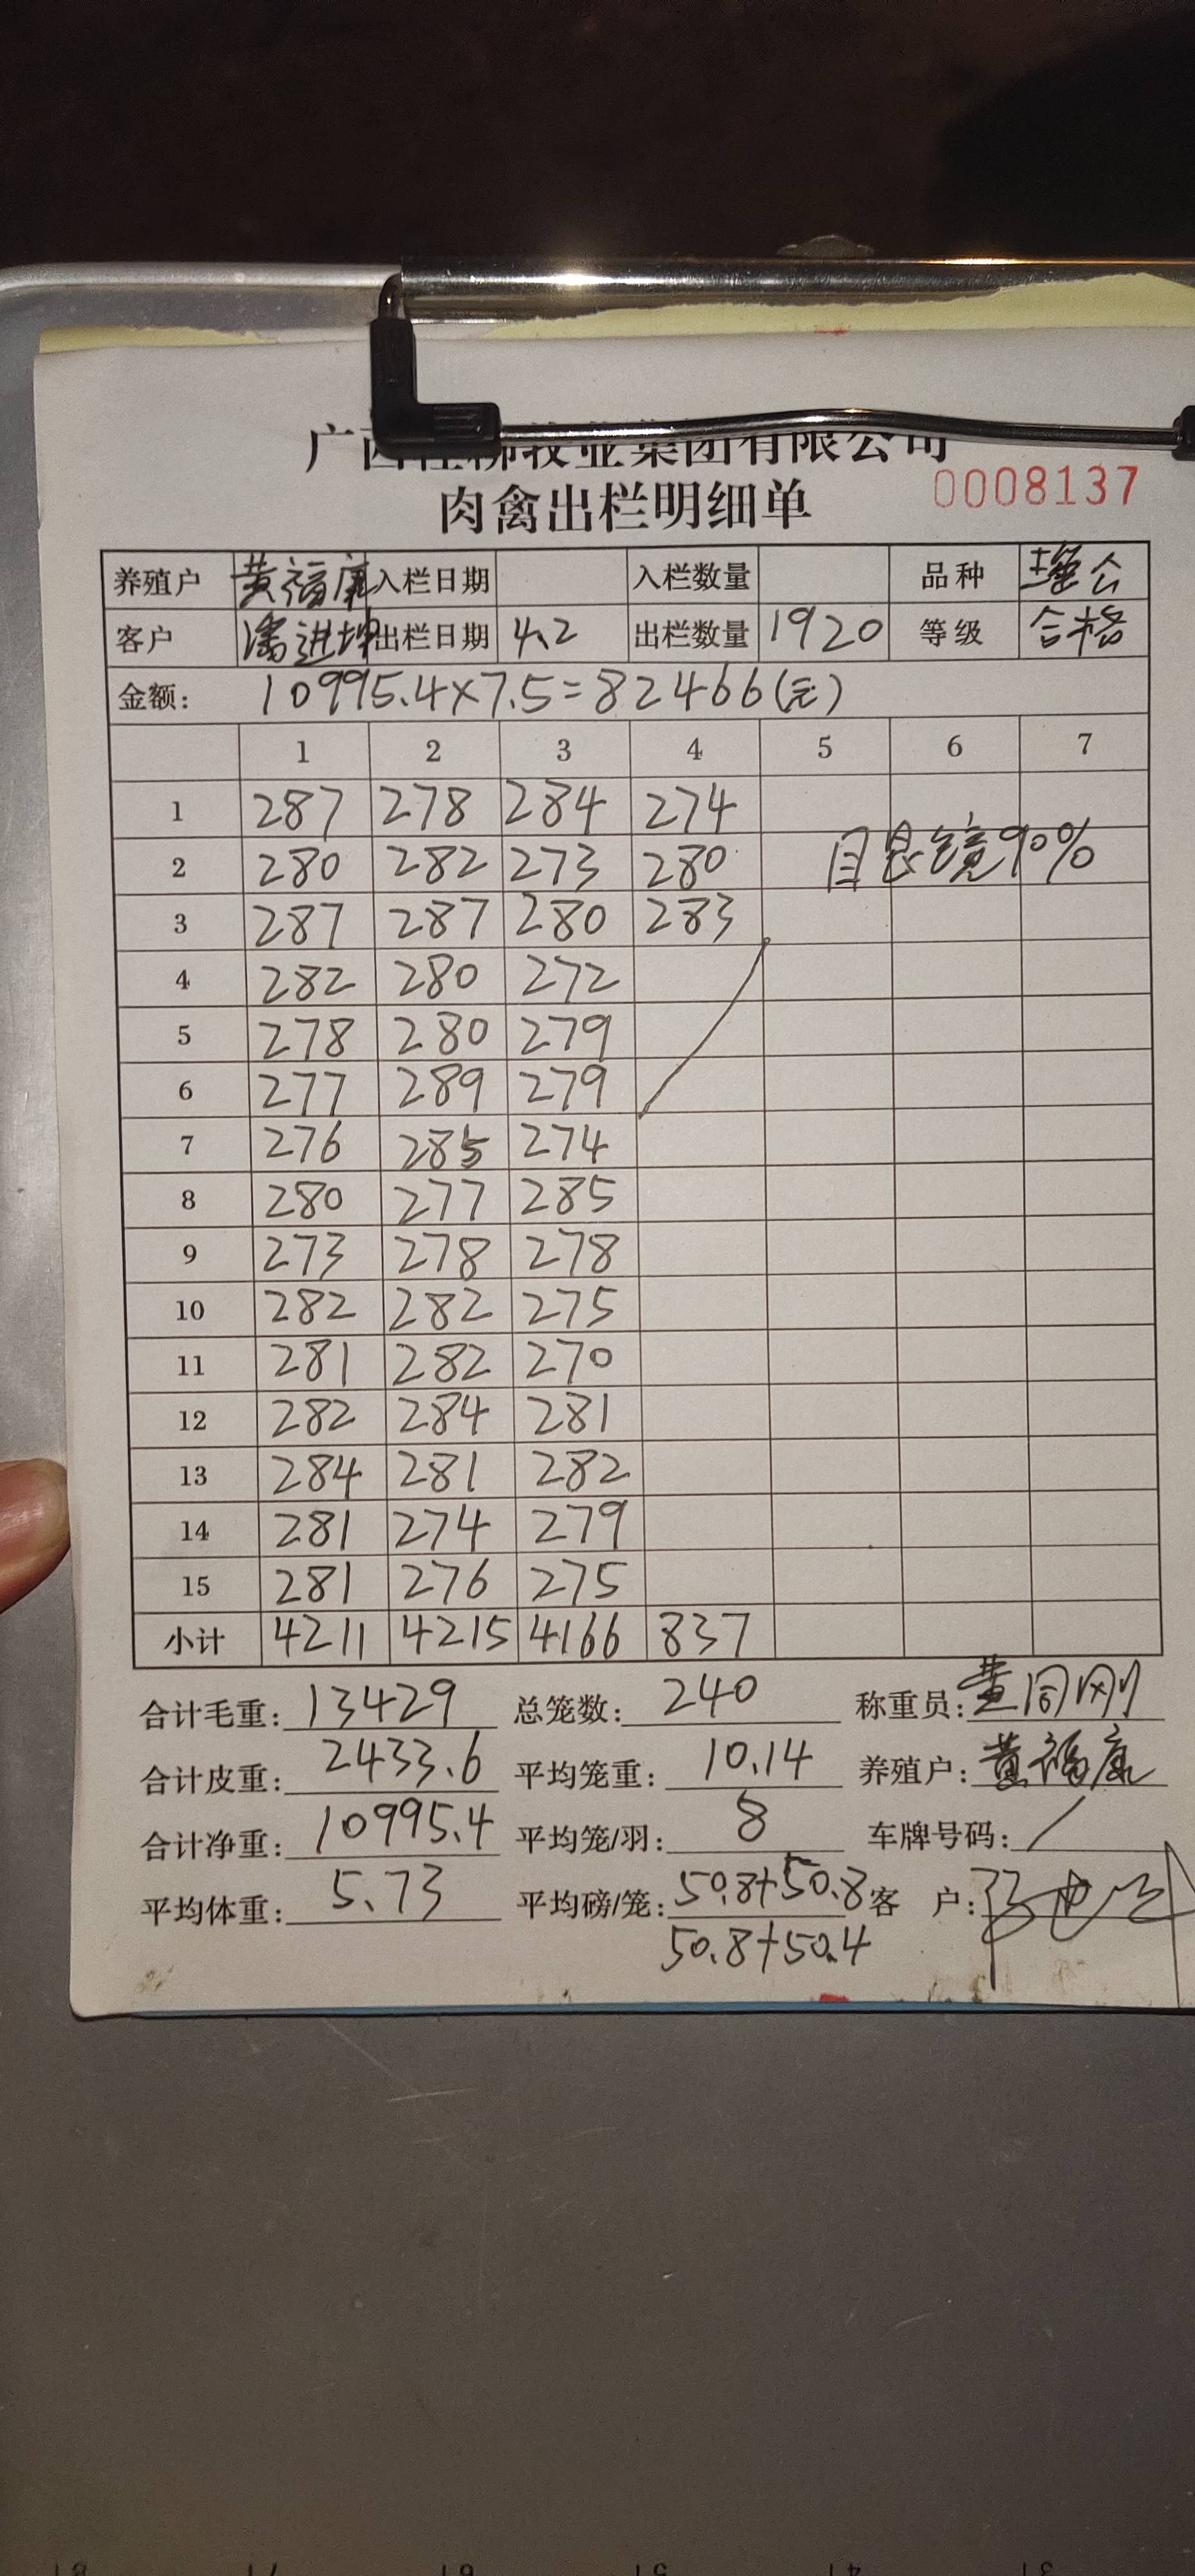 广西桂柳牧业集团有限公司
肉禽出栏明细单 0008137
养殖户 黄福康 入栏日期 入栏数量 品种 瑶公
客户 潘进坤 出栏日期 4.2 出栏数量 1920 等级 合格
金额: 10995.4×7.5=82466(元)
1 2 3 4 5 6 7
1 287 278 284 274
2 280 282 273 280 眼镜90%
3 287 287 280 283
4 282 280 272
5 278 280 279
6 277 289 279
7 276 285 274
8 280 277 285
9 273 278 278
10 282 282 275
11 281 282 270
12 282 284 281
13 284 281 282
14 281 274 279
15 281 276 275
小计 4211 4215 4166 837
合计毛重: 13429 总笼数: 240 称重员: 黄同刚
合计皮重: 2433.6 平均笼重: 10.14 养殖户: 黄福康
合计净重: 10995.4 平均笼/羽: 8 车牌号码: /
平均体重: 5.73 平均磅/笼: 50.8+50.8 客 户:
50.8+50.4